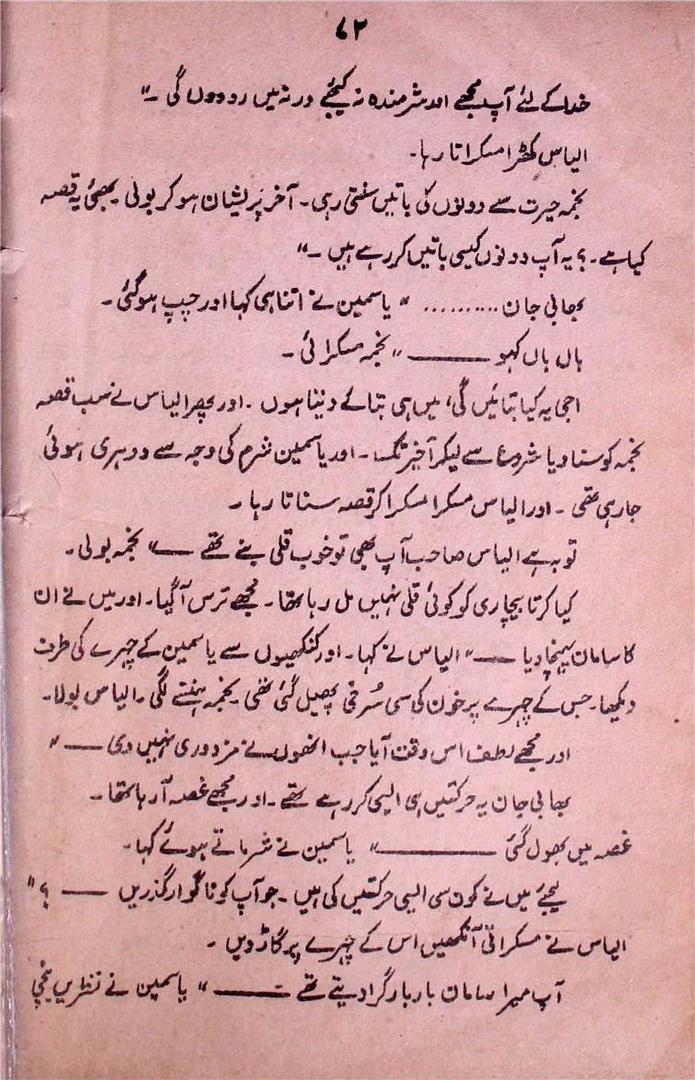 ۷۲
خدا کے لئے آپ مجھے اور شرمندہ نہ کیجئے ورنہ میں رو دوں گی ۔"
الیاس کھڑا مسکراتا رہا۔
نجمہ حیرت سے دونوں کی باتیں سنتی رہی۔ آخر پریشان ہو کر بولی بھئی یہ قصہ
کیا ہے۔ ؟ یہ آپ دونوں کیسی باتیں کر رہے ہیں ۔"
بھابی جان .......... " یاسمین نے اتنا ہی کہا اور چپ ہو گئی۔
ہاں ہاں کہو ــــــــ " نجمہ مسکرائی ۔
اجی یہ کیا بتائیں گی، میں ہی بتائے دیتا ہوں ۔ اور پھر الیاس نے سب قصہ
نجمہ کو سنا دیا شروع سے لیکر آخیر تک ۔ اور یاسمین شرم کی وجہ سے دوہری ہوئی
جا رہی تھی ۔ اور الیاس مسکرا مسکرا کر قصہ سناتا رہا ۔
توبہ ہے الیاس صاحب آپ بھی تو خوب قلی بنے تھے ــــ " نجمہ بولی۔
کیا کرتا بیچاری کو کوئی قلی نہیں مل رہا تھا۔ مجھے ترس آگیا۔ اور میں نے ان
کا سامان پہنچا دیا ــــ " الیاس نے کہا۔ اور کنکھیوں سے یاسمین کے چہرے کی طرف
دیکھا۔ جس کے چہرے پر خون کی سی سُرخی پھیل گئی تھی۔ نجمہ ہنسنے لگی۔ الیاس بولا۔
اور مجھے لطف اس وقت آیا جب انھوں نے مزدوری نہیں دی ــــ "
بھابی جان یہ حرکتیں ہی ایسی کر رہے تھے ۔ اور مجھے غصہ آ رہا تھا ۔
غصہ میں بھول گئی ــــــــــــ " یاسمین نے شرماتے ہوئے کہا۔
لیجئے میں نے کون سی ایسی حرکتیں کی ہیں ۔ جو آپ کو ناگوار گذریں ــــ ؟"
الیاس نے مسکراتی آنکھیں اس کے چہرے پر گاڑ دیں ۔
آپ میرا سامان بار بار گرا دیتے تھے ــــــــ " یاسمین نے نظریں نیچی